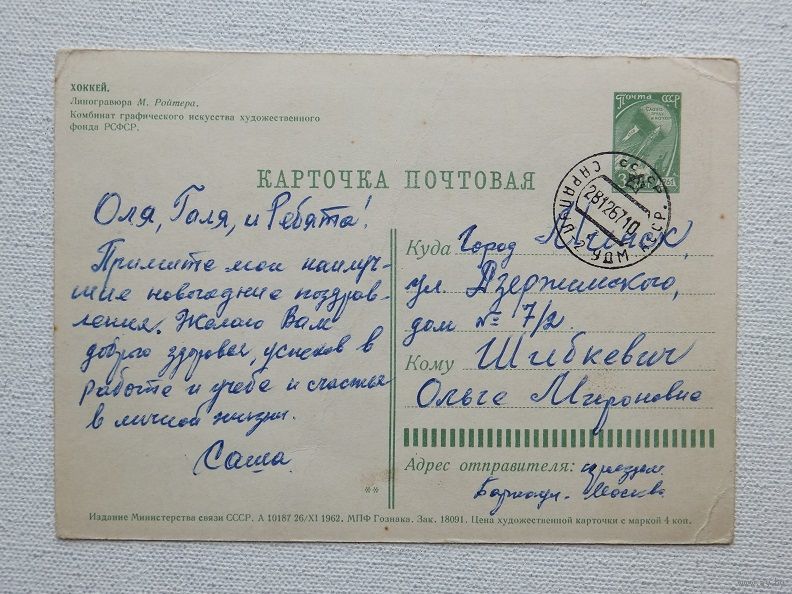 ХОККЕЙ.
Линогравюра М. Ройтера.
Комбинат графического искусства художественного
фонда РСФСР.
Почта СССР
КАРТОЧКА ПОЧТОВАЯ
САРАПУЛ УДМ. АССР.
28126710
Оля, Галя, и Ребята!
Примите мои наилуч-
шие новогодние поздрав-
ления. Желаю Вам
доброго здоровья, успехов в
работе и учебе и счастья
в личной жизни.
Саша
Куда Город Минск,
ул Дзержинского,
дом № 7/2
Кому Шибкевич
Ольге Мироновне
Адрес отправителя: проездом.
Барнаул. - Москва
**
Издание Министерства связи СССР. А 10187 26/XI 1962. МПФ Гознака. Зак. 18091. Цена художественной карточки с маркой 4 коп.